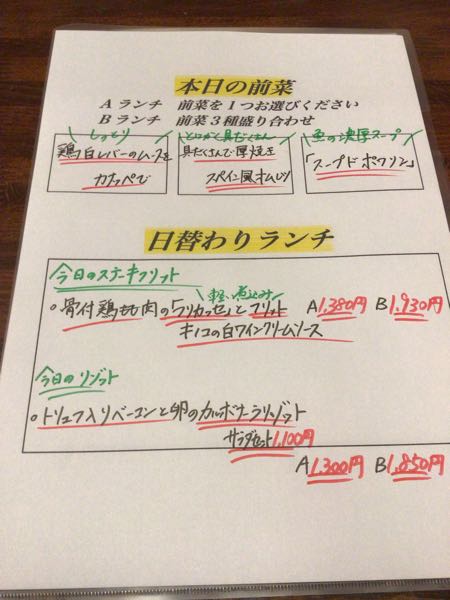 本日の前菜
Aランチ 前菜を1つお選びください
Bランチ 前菜3種盛り合わせ
しっとり
鶏白レバーのムースを
カナッペで
とにかく具だくさん
具だくさんで厚焼き
スペイン風オムレツ
魚の濃厚スープ
「スープドポワソン」
日替わりランチ
今日のステーキフリット
軽い煮込み
・骨付鶏もも肉の「フリカッセ」とフリット A1,380円 B1,930円
キノコの白ワインクリームソース
今日のリゾット
・トリュフ入りベーコンと卵のカルボナーラリゾット
サラダセット1,100円
A1,300円 B1,850円